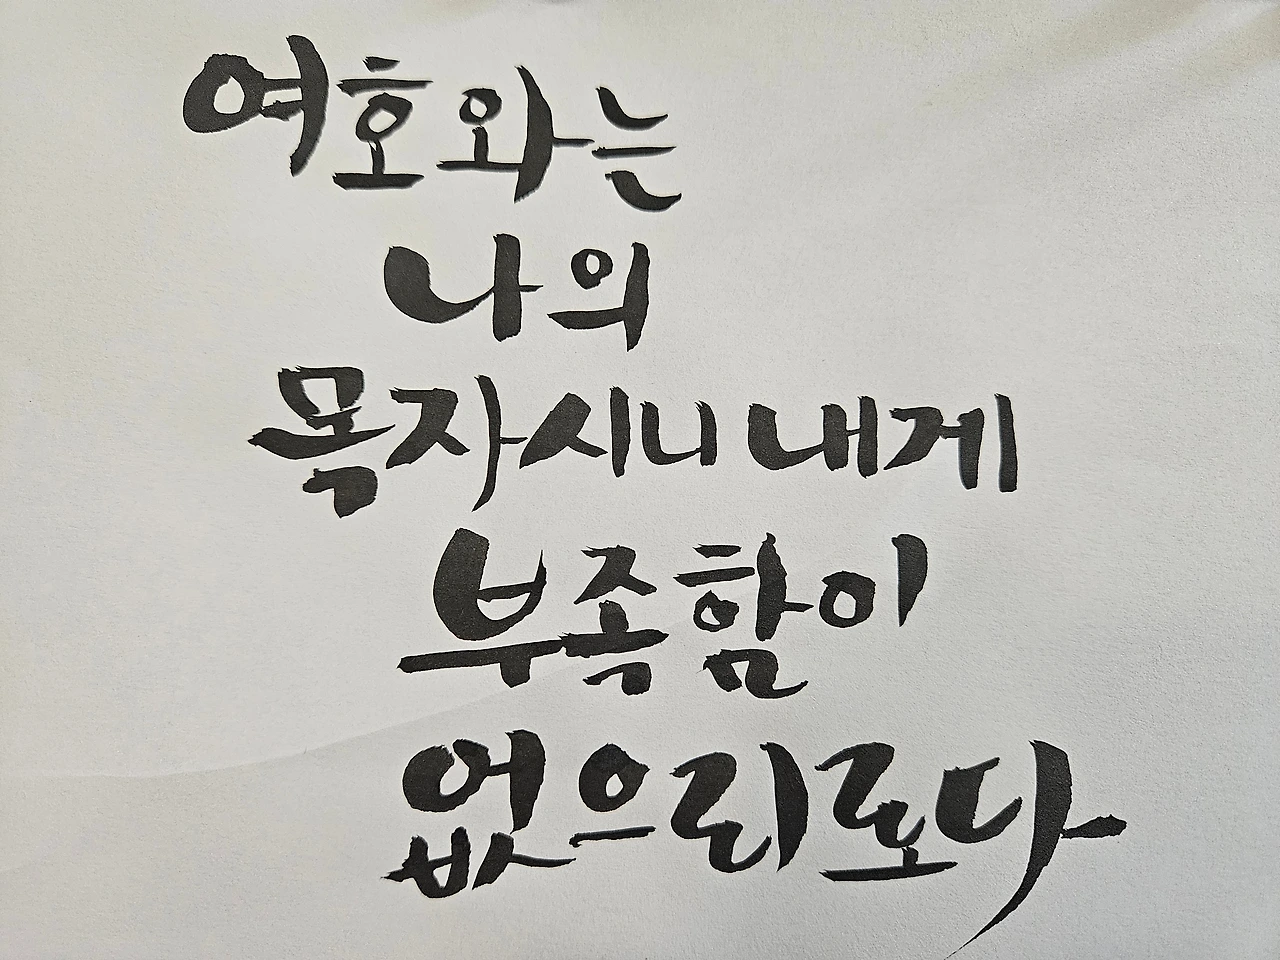 여호와는
나의
목자시니 내게
부족함이
없으리로다